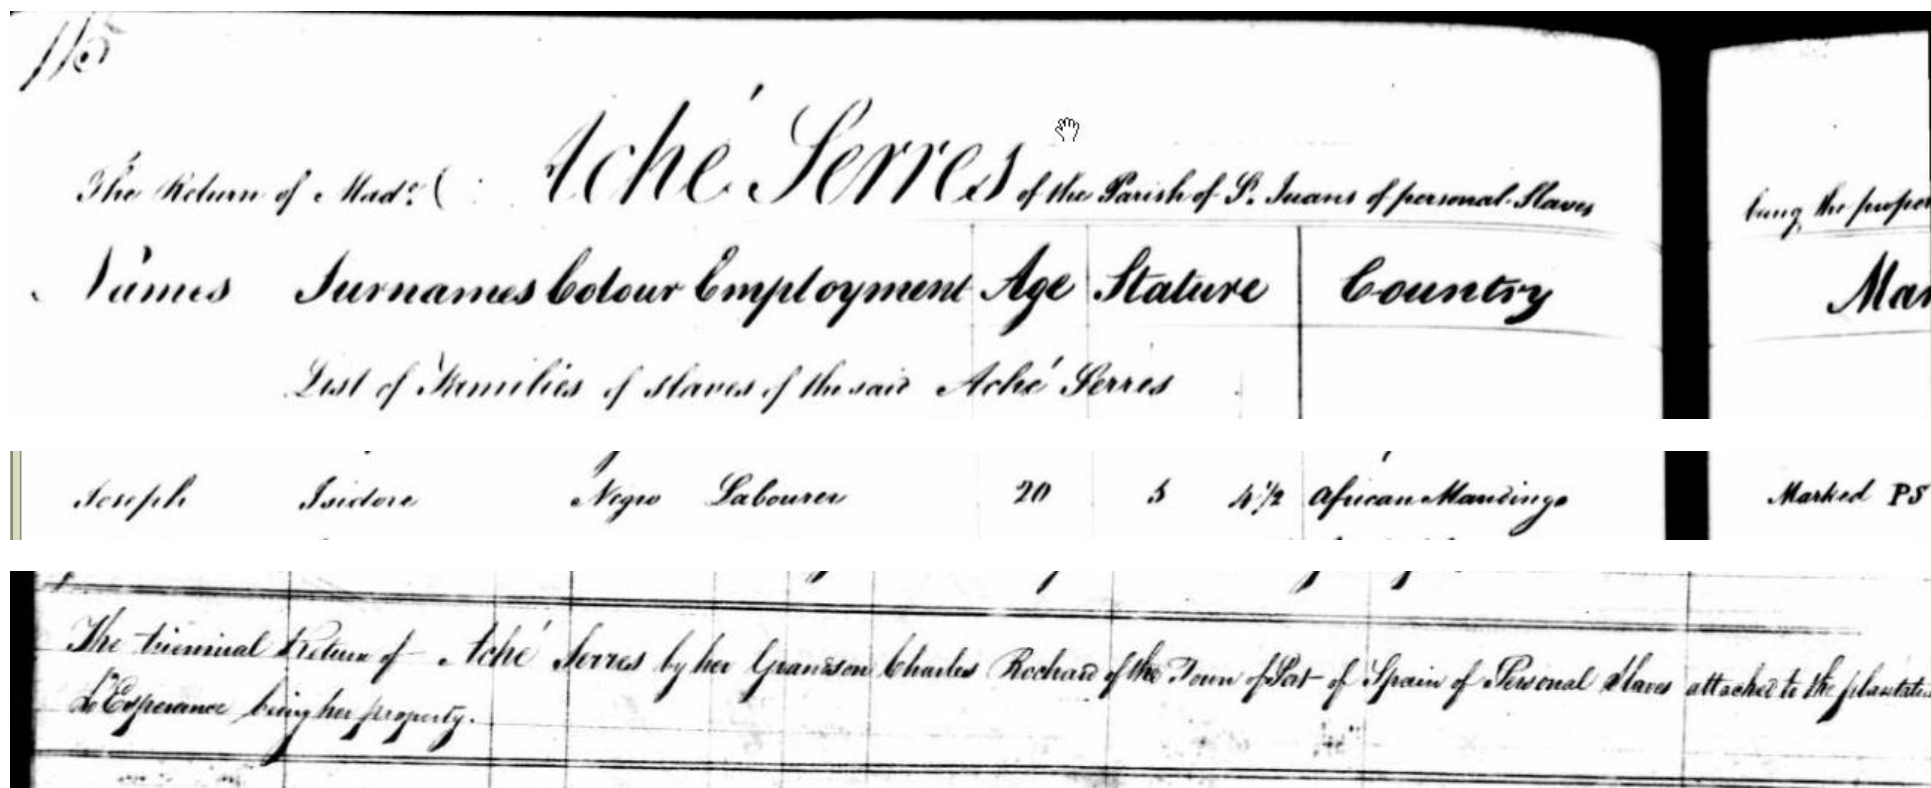 115
The Return of Mad.e ( : Aché Serres of the Parish of St. Juans of personal Slaves being the proper
Names Surnames Colour Employment Age Stature Country Mar
List of Families of slaves of the said Aché Serres
Joseph Isidore Negro Labourer 20 5 4 1/2 African Mandingo Marked PS
The triennial Return of Aché Serres by her Grandson Charles Rochard of the Town of Port of Spain of Personal Slaves attached to the plantatio
L'Esperance being her property.